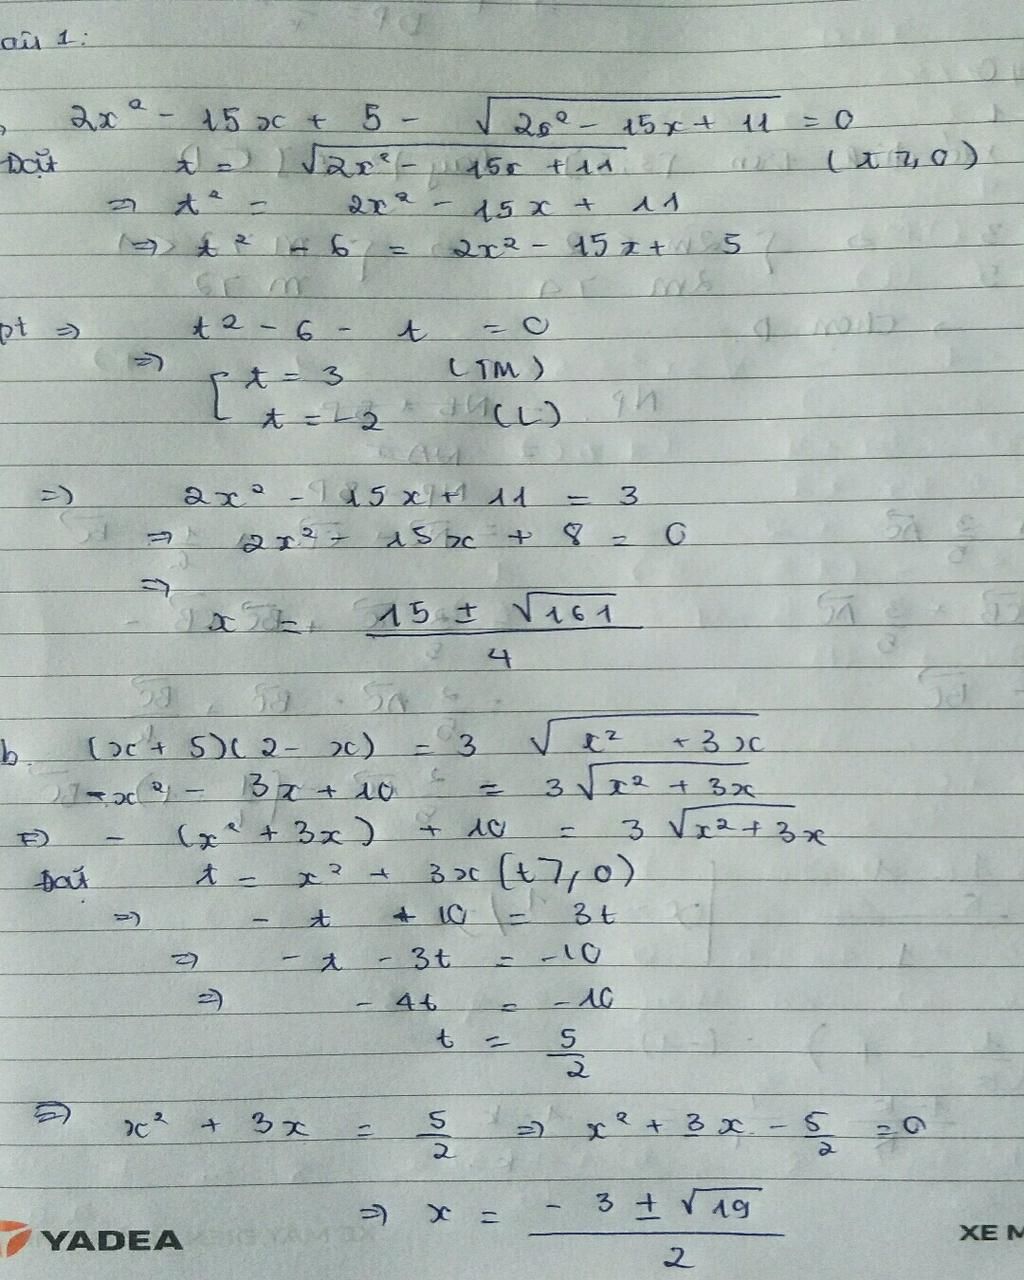 1:
2x² - 15x + 5 - √(2x² - 15x + 11) = 0
Đặt t = √(2x² - 15x + 11) (t ≥ 0)
⇒ t² = 2x² - 15x + 11
⇒ t² - 6 = 2x² - 15x + 5
pt ⇒ t² - 6 - t = 0
⇒ [ t = 3 (TM)
t = -2 (L)
⇒ 2x² - 15x + 11 = 3
⇒ 2x² - 15x + 8 = 0
⇒
x = (15 ± √161)/4
b. (x + 5)(2 - x) = 3 √(x² + 3x)
-x² - 3x + 10 = 3√(x² + 3x)
⇔ - (x² + 3x) + 10 = 3 √(x² + 3x)
Đặt t = x² + 3x (t ≥ 0)
⇒ - t + 10 = 3t
⇒ - t - 3t = -10
⇒ - 4t = -10
t = 5/2
⇒ x² + 3x = 5/2 ⇒ x² + 3x - 5/2 = 0
⇒ x = (-3 ± √19)/2
YADEA XE M